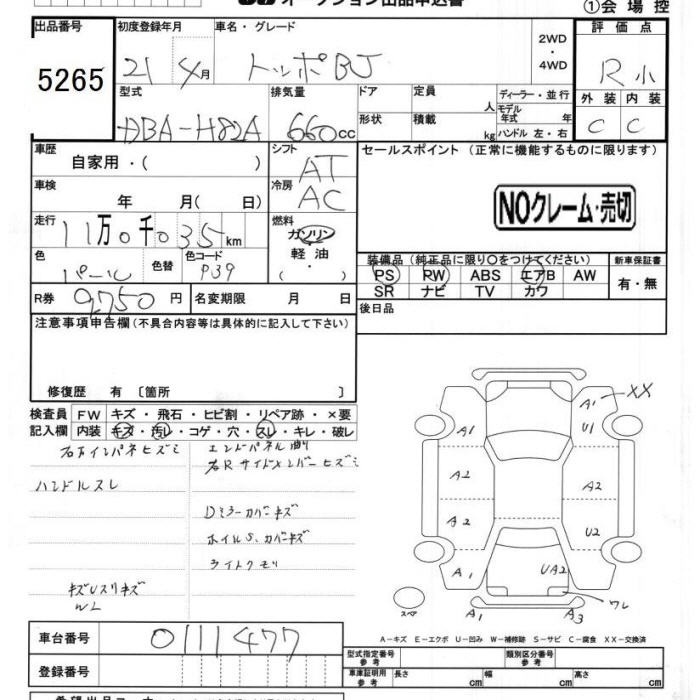 オークション出品申込書
①会場控
出品番号 初度登録年月 車名・グレード 2WD ・ 4WD 評価点
5265 21 4月 トッポBJ R 小
型式 排気量 ドア 定員 人 ディーラー・並行 外装 内装
DBA-H82A 660cc 形状 積載 kg モデル年式 年 ハンドル 左・右 C C
車歴 シフト セールスポイント (正常に機能するものに限ります)
自家用・( ) AT
車検 冷房
年 月( 日) AC NOクレーム・売切
走行 燃料
11万0千035km ガソリン
軽油
・( )
色 色替 色コード 装備品 (純正品に限り○をつけてください) 新車保証書
パール P39 PS PW ABS エアB AW 有・無
SR ナビ TV カワ
R券 9,750円 名変期限 月 日 後日品
注意事項申告欄(不具合内容等は具体的に記入して下さい)
修復歴 有 〔箇所 〕
検査員 FW キズ・飛石・ヒビ割・リペア跡・×要
記入欄 内装 キズ・汚レ・コゲ・穴・スレ・キレ・破レ
右インパネヒズミ エンドパネル
右Rサイドメンバーヒズミ
ハンドルスレ
Dミラーカバーキズ
ホイルS、カバーキズ
ライトクモリ
キズUスリキズ
WL
A1 XX
A1 U1
A2 A2
A2 U2
A1 UA2
スペア A1 A3 ワレ
A−キズ E−エクボ U−凹み W−補修跡 S−サビ C−腐食 XX−交換済
車台番号 0111477 型式指定番号 参考 類別区分番号 参考
登録番号 車庫証明用 参考 長さ cm 幅 cm 高さ cm
希望出品コーナー